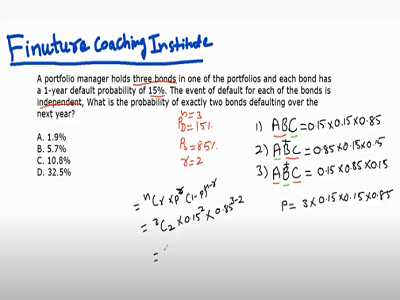 Finuture Coaching Institute
A portfolio manager holds three bonds in one of the portfolios and each bond has
a 1-year default probability of 15%. The event of default for each of the bonds is
independent. What is the probability of exactly two bonds defaulting over the
next year?
A. 1.9%
B. 5.7%
C. 10.8%
D. 32.5%
n=3
PD=15%
Ps=85%
r=2
= nCr × p^r (1-p)^n-r
= 3C2 × 0.15² × 0.85^3-2
=
1) ABC = 0.15×0.15×0.85
+
2) ABC = 0.85×0.15×0.15
+
3) ABC = 0.15×0.85×0.15
P= 3×0.15×0.15×0.85